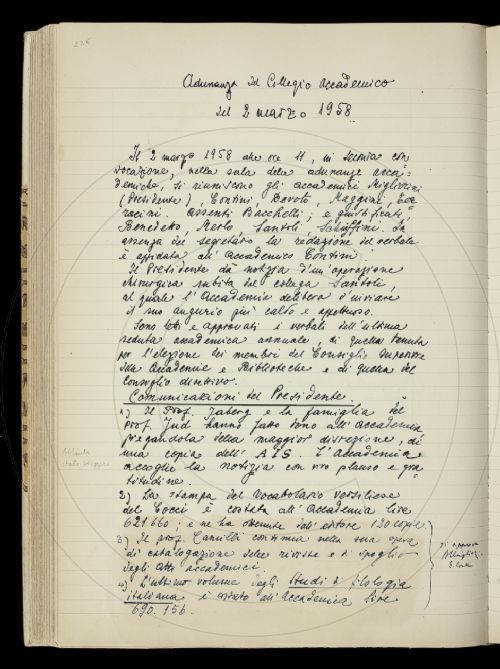 226
Adunanza del Collegio Accademico
del 2 marzo 1958
Il 2 marzo 1958 alle ore 11, in seconda con
vocazione, nella sala delle adunanze acca=
demiche, si riuniscono gli accademici Migliorini
(Presidente), Contini, Devoto, Maggini, Pa=
racini. Assenti Bacchelli; e giustificati,
Benedetto, Merlo Santoli Schiaffini. In
assenza del segretario la redazione del verbale
è affidata all'Accademico Contini.
Il Presidente dà notizia d'un'operazione
chirurgica subita dal collega Santoli,
al quale l'Accademia delibera d'inviare
il suo augurio più caldo e affettuoso.
Sono letti e approvati i verbali dell'ultima
seduta accademica annuale, di quella tenuta
per l'elezione dei membri del Consiglio Superiore
delle Accademie e Biblioteche e di quella del
consiglio direttivo.
Comunicazioni del Presidente.
1) Il Prof. Jaberg e la famiglia del
prof. Jud hanno fatto dono all'Accademia
pregandola della maggior discrezione, di
una copia dell'AIS. L'Accademia
accoglie la notizia con vivo plauso e gra
titudine.
Atlante
italo-svizzero
2) La stampa del Vocabolario Versiliese
del Cocci è costata all'Accademia lire
621.660; e ne ha ottenute dall'editore 130 copie.
3) Il prof. Camilli continua nella sua opera
di catalogazione delle riviste e di spoglio
degli Atti accademici.
4) L'ultimo volume degli Studi di filologia
italiana è costato all'Accademia lire
690.156.
si approva